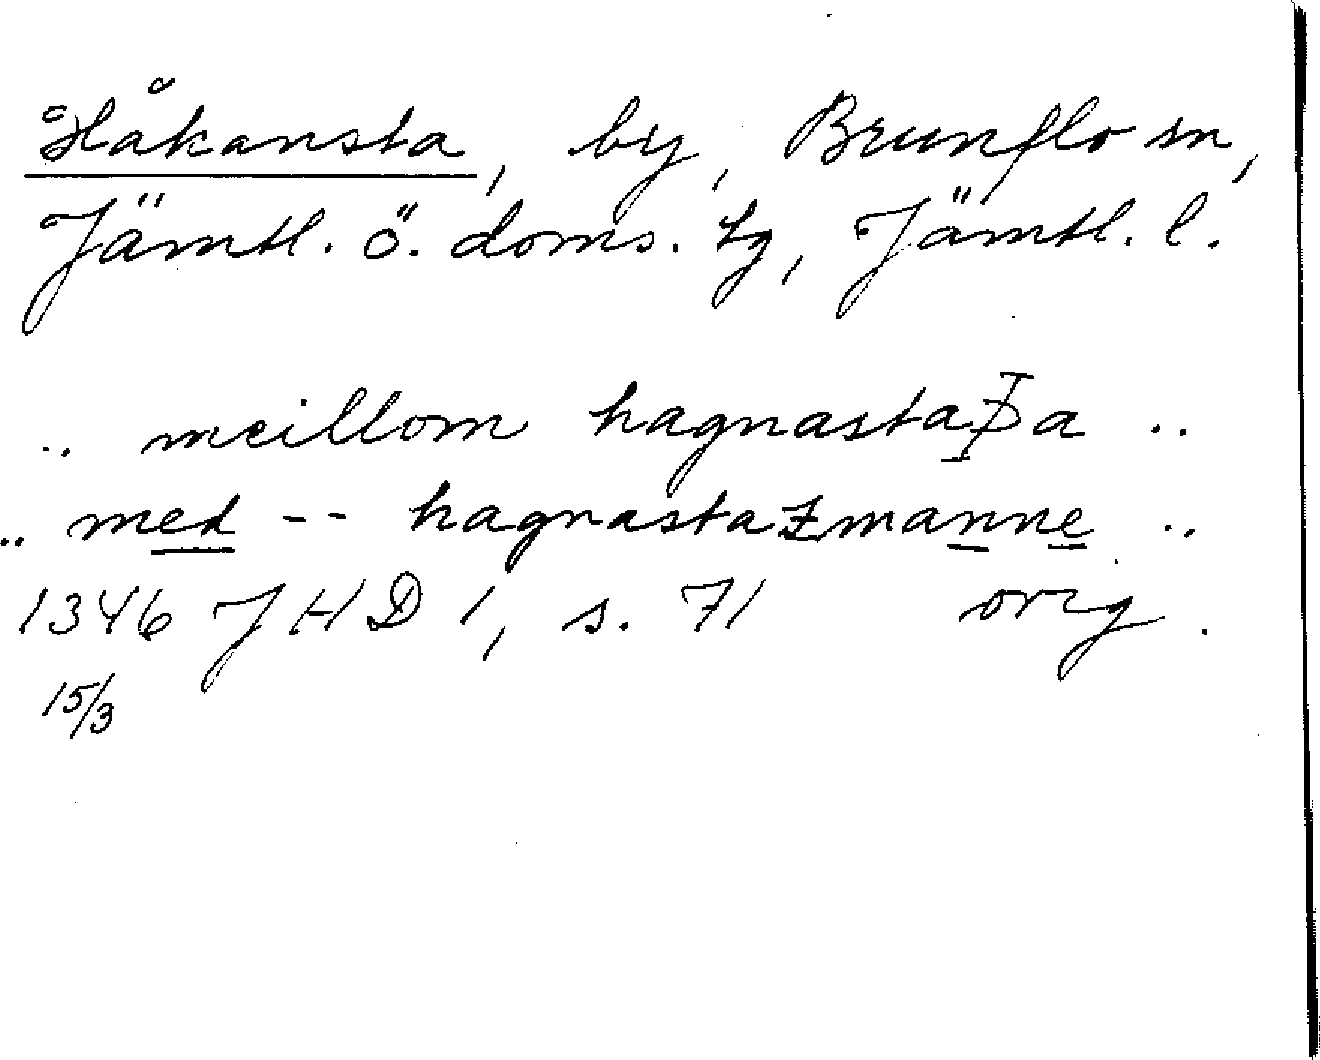 Håkansta, by, Brunflo sn,
Jämtl. ö. doms. tg, Jämtl. l.
.. meillom hagnastaÞa ..
.. med -- hagnastazmanne ..
1346 JHD 1, s. 71 orig.
15/3